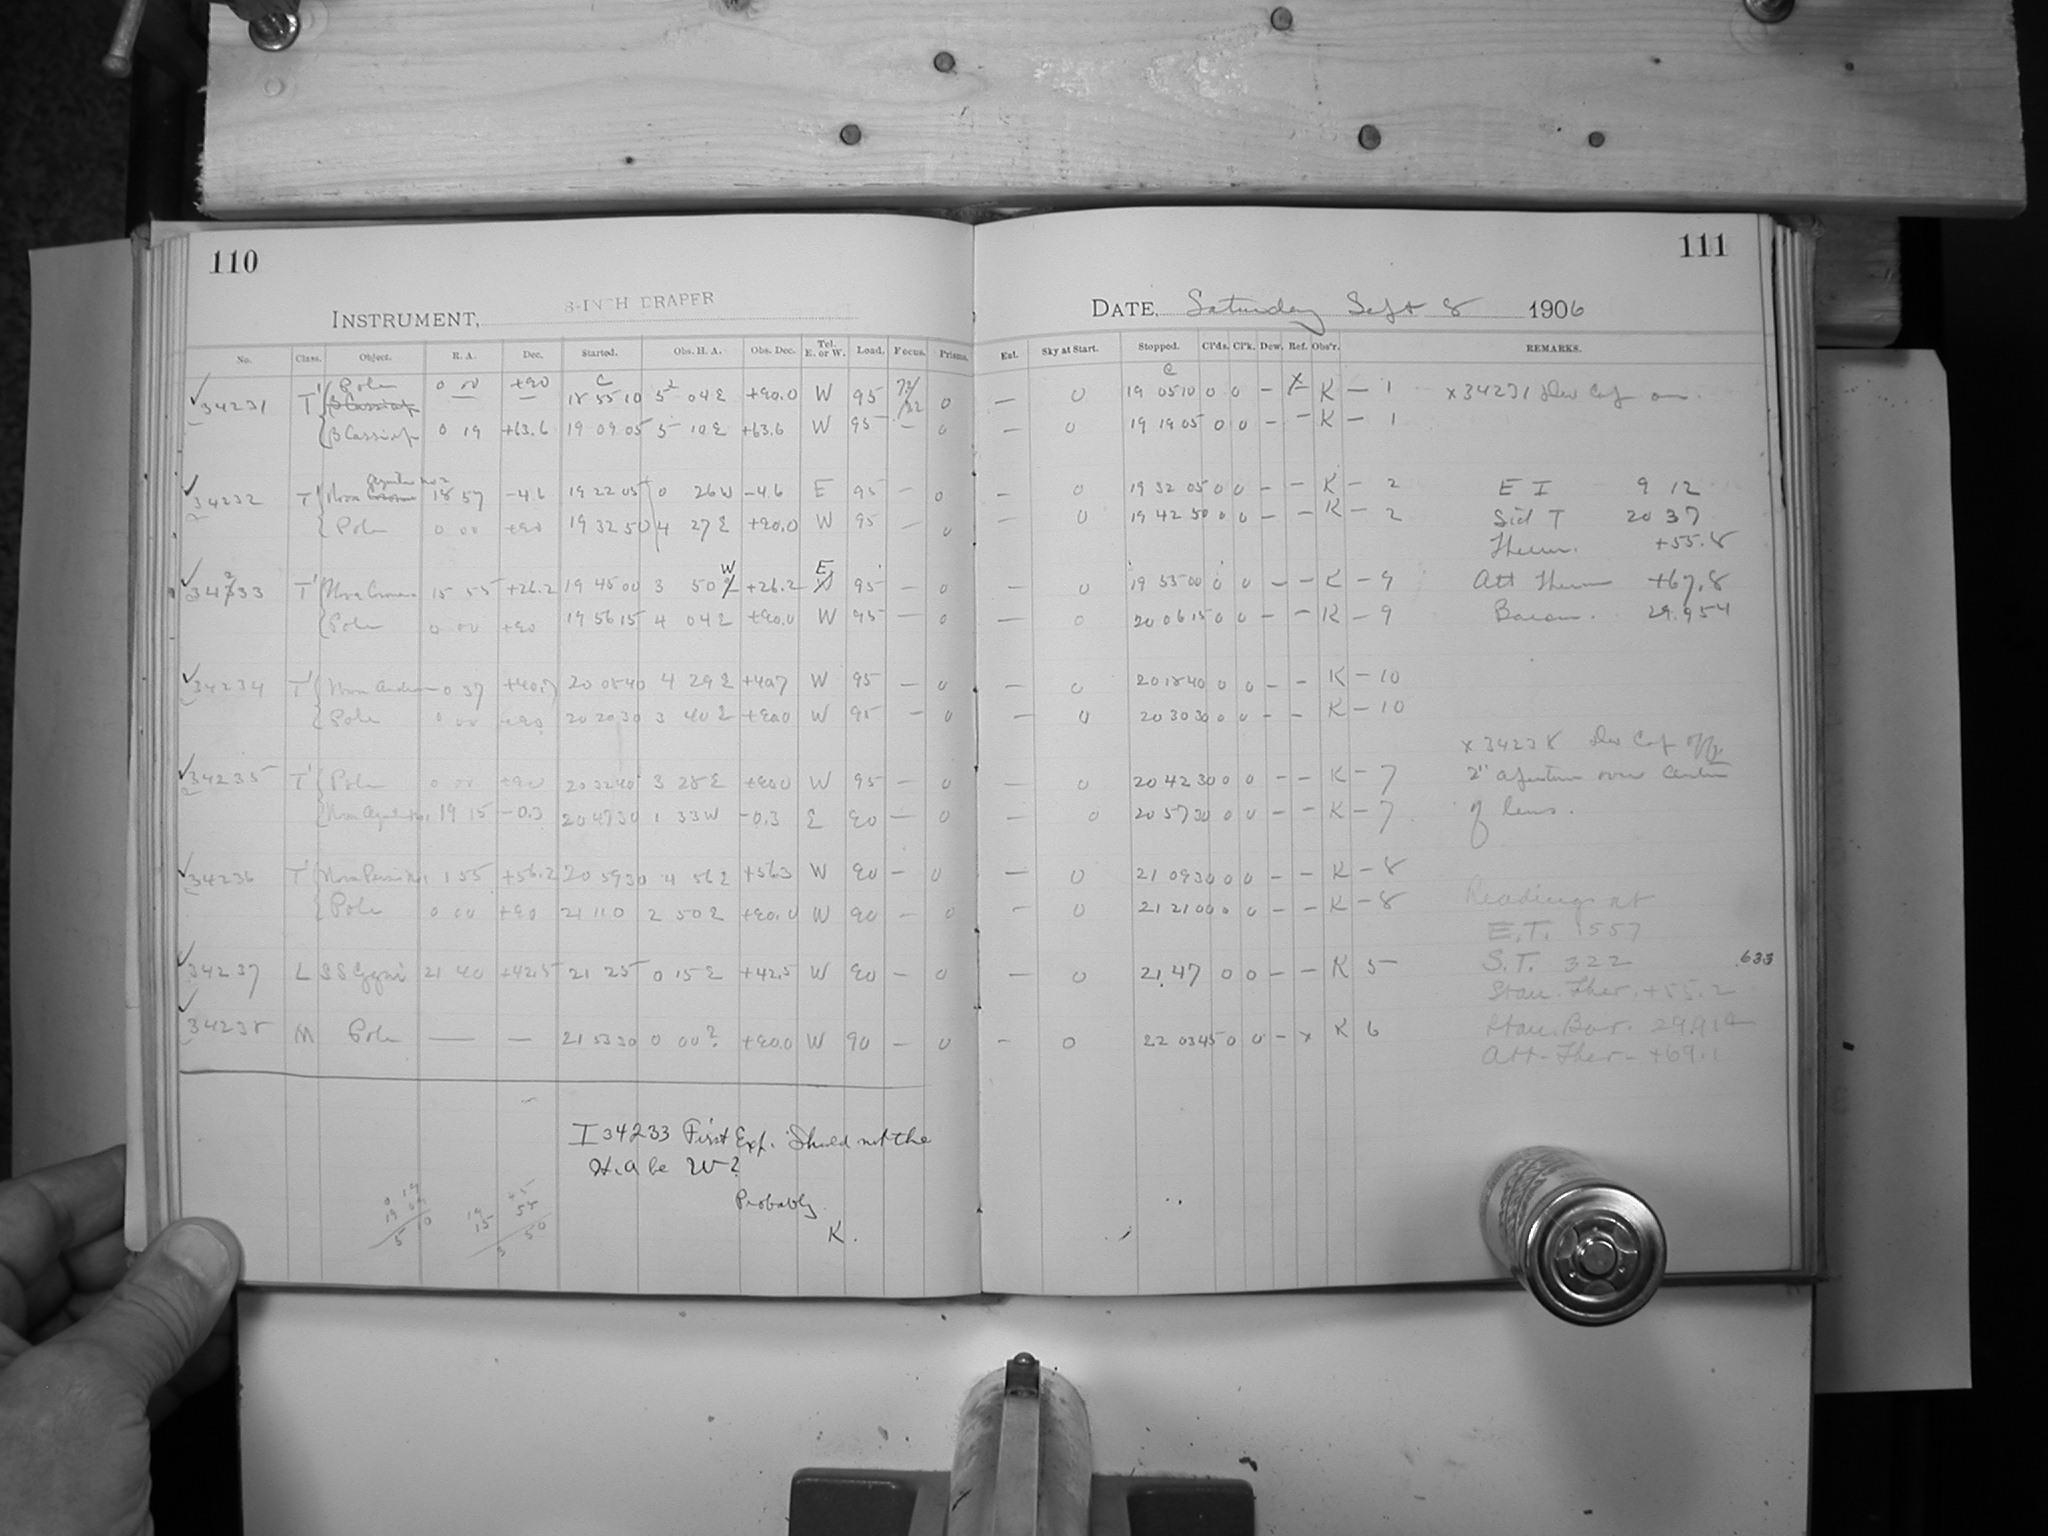 110
8-INCH DRAPER
INSTRUMENT,
No. Class. Object. R. A. Dec. Started. Obs. H. A. Obs. Dec. Tel. E. or W. Load. Focus. Prisms.
34231 T' Pole 0 00 +90 C 18 55 10 5 04 E +90.0 W 95 0
β Cassiop 0 19 +63.6 19 09 05 5 10 E +63.6 W 95 – 0
34232 T' Nova Aquilae No 2 18 57 –4.6 19 22 05 0 26 W –4.6 E 95 – 0
Pole 0 00 +90 19 32 50 4 27 E +90.0 W 95 – 0
34233 T' Nova Coronae 15 55 +26.2 19 45 00 3 50 W +26.2 E 95 – 0
Pole 0 00 +90 19 56 15 4 04 E +90.0 W 95 – 0
34234 T' Nova Androm 0 37 +40.7 20 08 40 4 29 E +40.7 W 95 – 0
Pole 0 00 +90 20 20 30 3 40 E +90.0 W 95 – 0
34235 T' Pole 0 00 +90 20 32 40 3 28 E +90.0 W 95 – 0
Nova Aquilae No 1 19 15 –0.3 20 47 30 1 33 W –0.3 E 90 – 0
34236 T' Nova Persei No 1 1 55 +56.2 20 59 30 4 56 E +56.3 W 90 – 0
Pole 0 00 +90 21 11 0 2 50 E +90.0 W 90 – 0
34237 L SS Cygni 21 40 +42.5 21 25 0 15 E +42.5 W 90 – 0
34238 M Pole — — 21 53 30 0 00 ? +90.0 W 90 – 0
I 34233 First Exp. Should not the
H.A be W?
Probably
K.
0 19
19 09
5 10
19 45
15 55
3 50
111
DATE, Saturday Sept 8 1906
Ent. Sky at Start. Stopped. Cl'ds. Cl'k. Dew. Ref. Obs'r. REMARKS.
– 0 C 19 05 10 0 0 – x K – 1 x 34231 Dew Cap on.
– 0 19 19 05 0 0 – – K – 1
– 0 19 32 05 0 0 – – K – 2 E T 9 12
– 0 19 42 50 0 0 – – K – 2 Sid T 20 37
Therm. +55.8
– 0 19 55 00 0 0 – – K – 9 Att Therm +67.8
– 0 20 06 15 0 0 – – K – 9 Barom. 29.954
– 0 20 18 40 0 0 – – K – 10
– 0 20 30 30 0 0 – – K – 10
x 34238 Dew Cap off
– 0 20 42 30 0 0 – – K – 7 2" aperture over center
– 0 20 57 30 0 0 – – K – 7 of lens.
– 0 21 09 30 0 0 – – K – 8
– 0 21 21 00 0 0 – – K – 8 Readings at
E.T. 1557
– 0 21 47 0 0 – – K 5 S.T. 322 .633
Stan. Ther. +55.2
– 0 22 03 45 0 0 – x K 6 Stan. Bar.
Att-Ther- +69.1